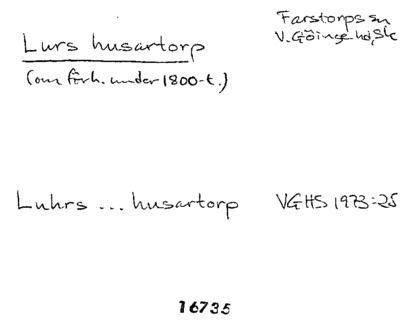 Lurs husartorp
(om förh. under 1800-t.)
Farstorps sn
V. Göinge hd, Sk
Luhrs ... husartorp VGHS 1973:25
16735